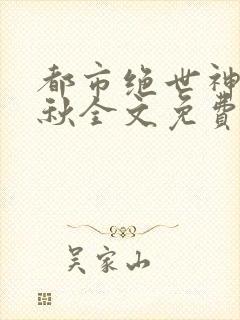 都市绝世神
秋全文免費
吴家山